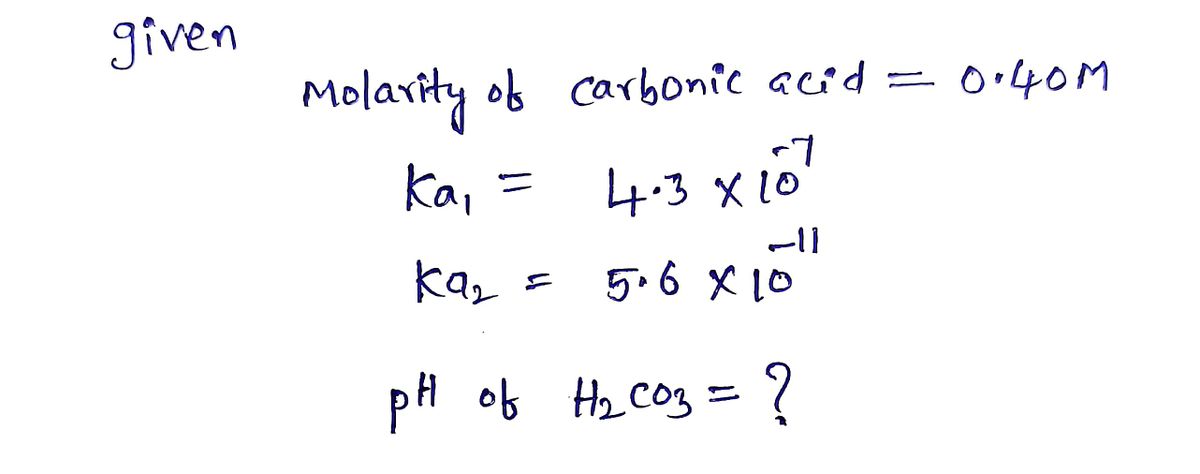 given
Molarity of carbonic acid = 0.40M
Ka₁ = 4.3 x 10⁻⁷
Ka₂ = 5.6 x 10⁻¹¹
pH of H₂CO₃ = ?